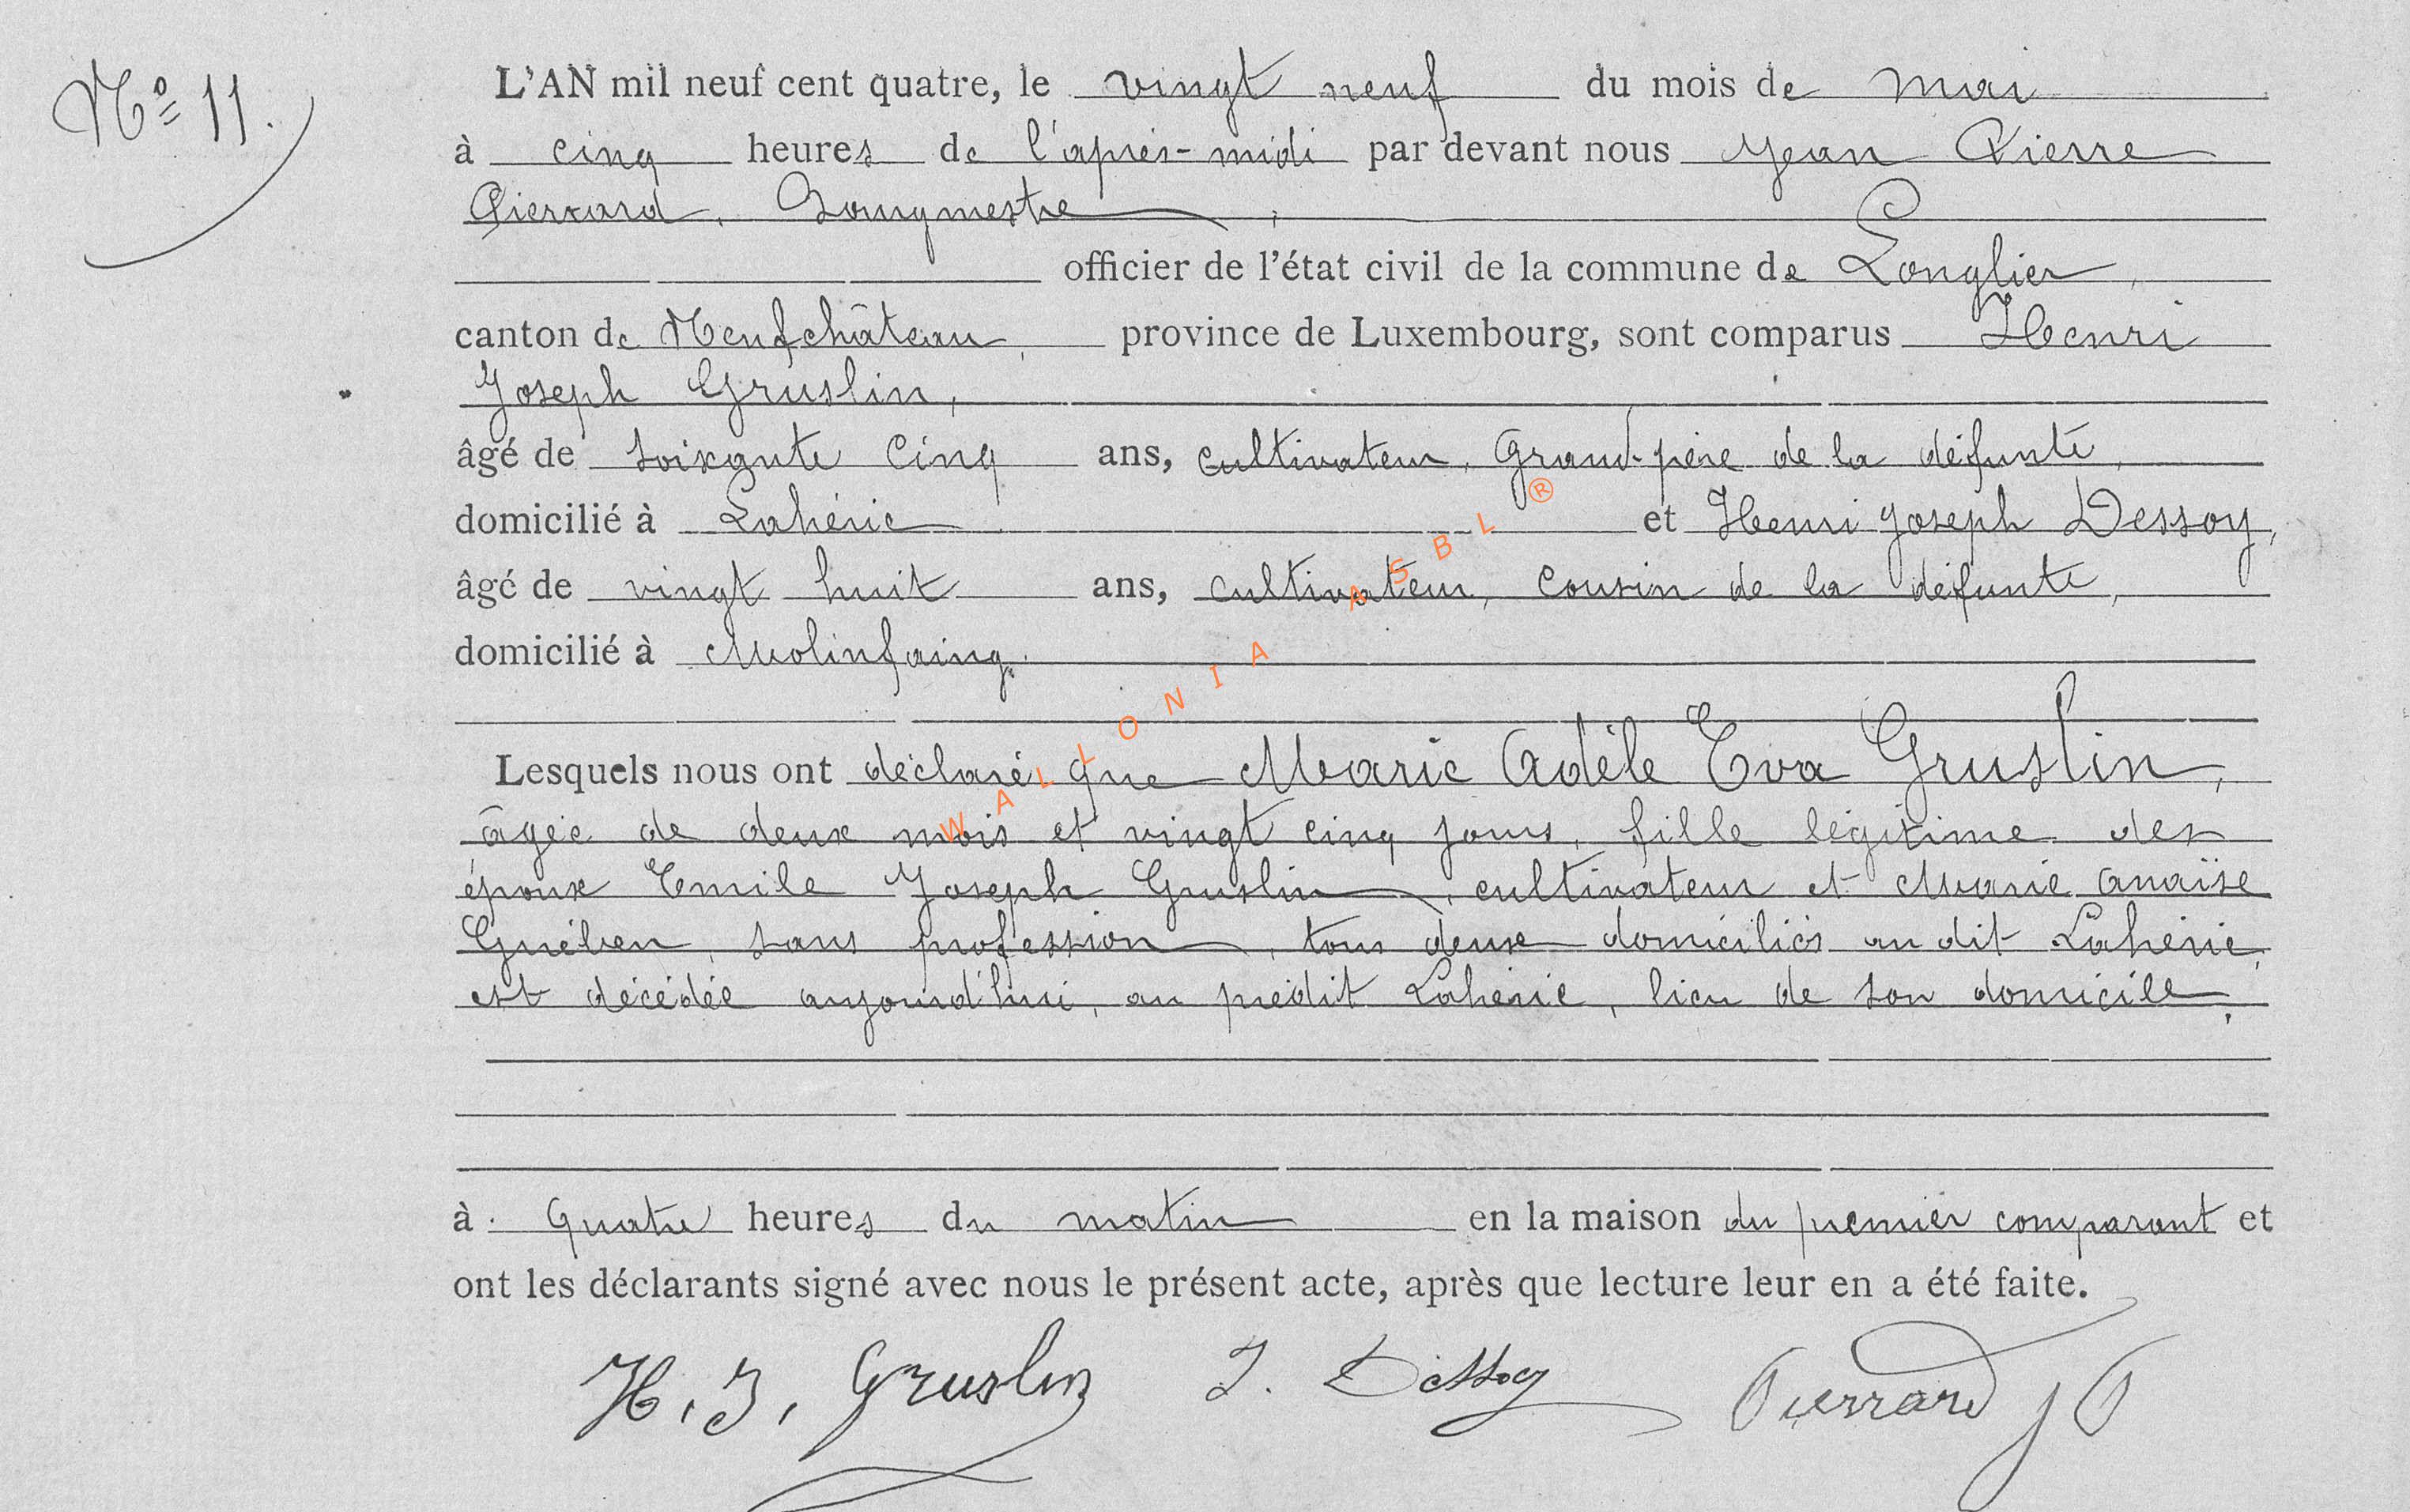 Nº 11.
L'AN mil neuf cent quatre, le vingt neuf du mois de mai
à cinq heures de l'après-midi par devant nous Jean Pierre
Pierrard, Bourgmestre,
officier de l'état civil de la commune de Longlier,
canton de Neufchâteau, province de Luxembourg, sont comparus Henri
Joseph Gruslin,
âgé de soixante cinq ans, cultivateur, Grand-père de la défunte,
domicilié à Lahérie et Henri Joseph Dessoy,
âgé de vingt huit ans, cultivateur, cousin de la défunte,
domicilié à Molinfaing.
Lesquels nous ont déclaré que Marie Adèle Eva Gruslin,
âgée de deux mois et vingt cinq jours, fille légitime des
époux Emile Joseph Gruslin, cultivateur et Marie Anaïse
Guében, sans profession, tous deux domiciliés au dit Lahérie,
est décédée aujourd'hui, au prédit Lahérie, lieu de son domicile.
à quatre heures du matin en la maison du premier comparant et
ont les déclarants signé avec nous le présent acte, après que lecture leur en a été faite.
H. J. Gruslin J. Dessoy Pierrard J P
WALLONIA ASBL ®